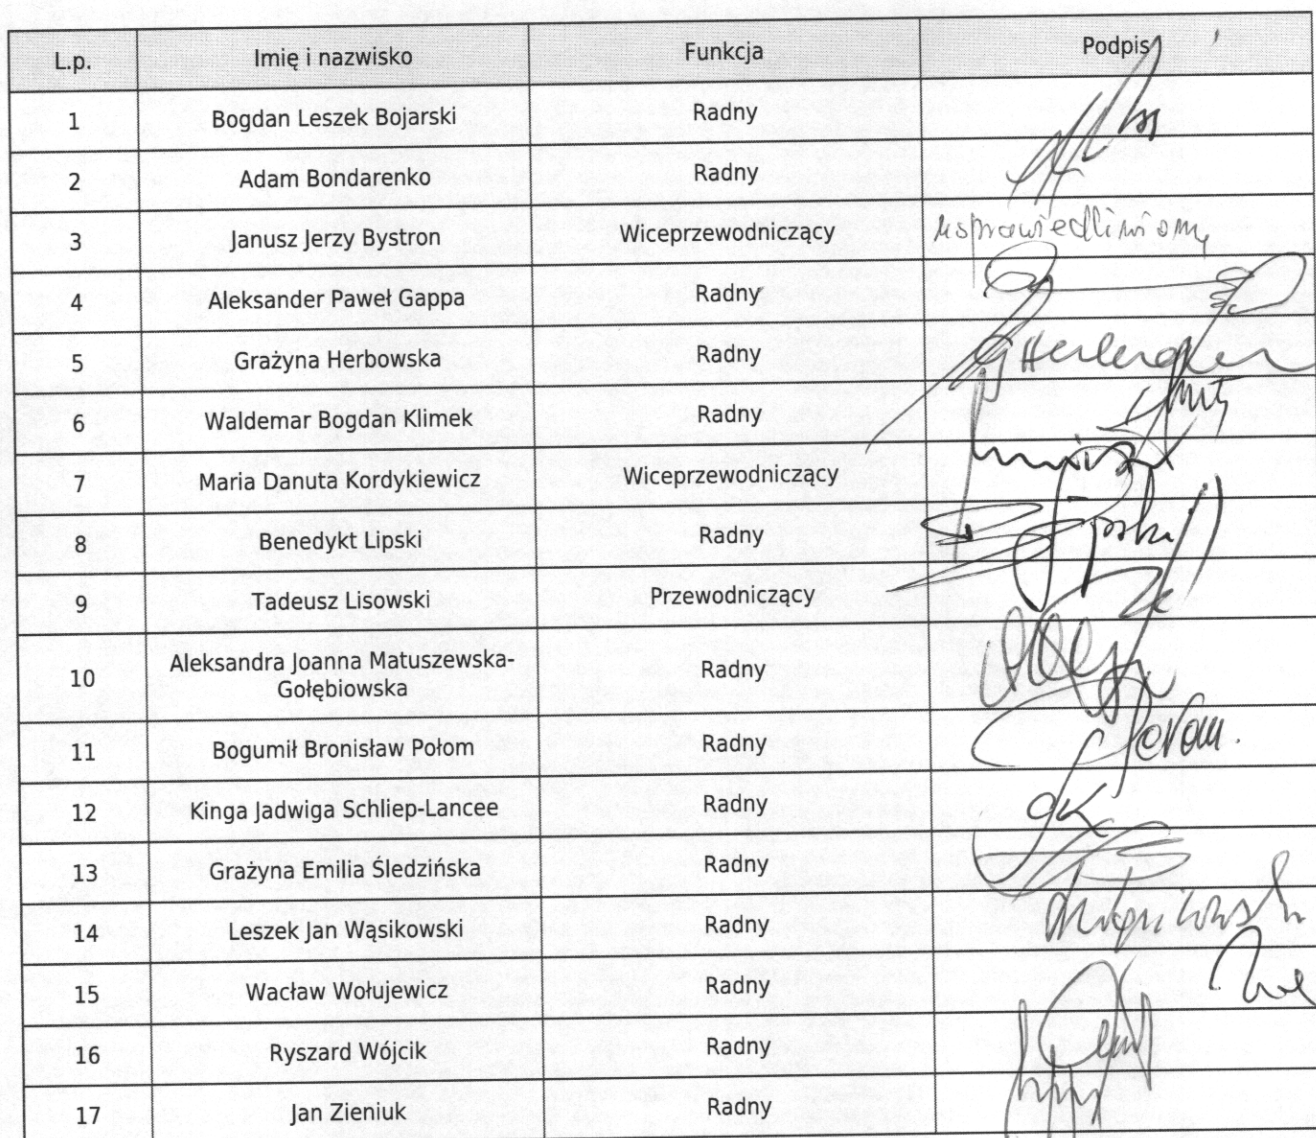 L.p. Imię i nazwisko Funkcja Podpis
1 Bogdan Leszek Bojarski Radny
2 Adam Bondarenko Radny
3 Janusz Jerzy Bystron Wiceprzewodniczący usprawiedliwiony
4 Aleksander Paweł Gappa Radny
5 Grażyna Herbowska Radny
6 Waldemar Bogdan Klimek Radny
7 Maria Danuta Kordykiewicz Wiceprzewodniczący
8 Benedykt Lipski Radny
9 Tadeusz Lisowski Przewodniczący
10 Aleksandra Joanna Matuszewska-
Gołębiowska Radny
11 Bogumił Bronisław Połom Radny
12 Kinga Jadwiga Schliep-Lancee Radny
13 Grażyna Emilia Śledzińska Radny
14 Leszek Jan Wąsikowski Radny
15 Wacław Wołujewicz Radny
16 Ryszard Wójcik Radny
17 Jan Zieniuk Radny